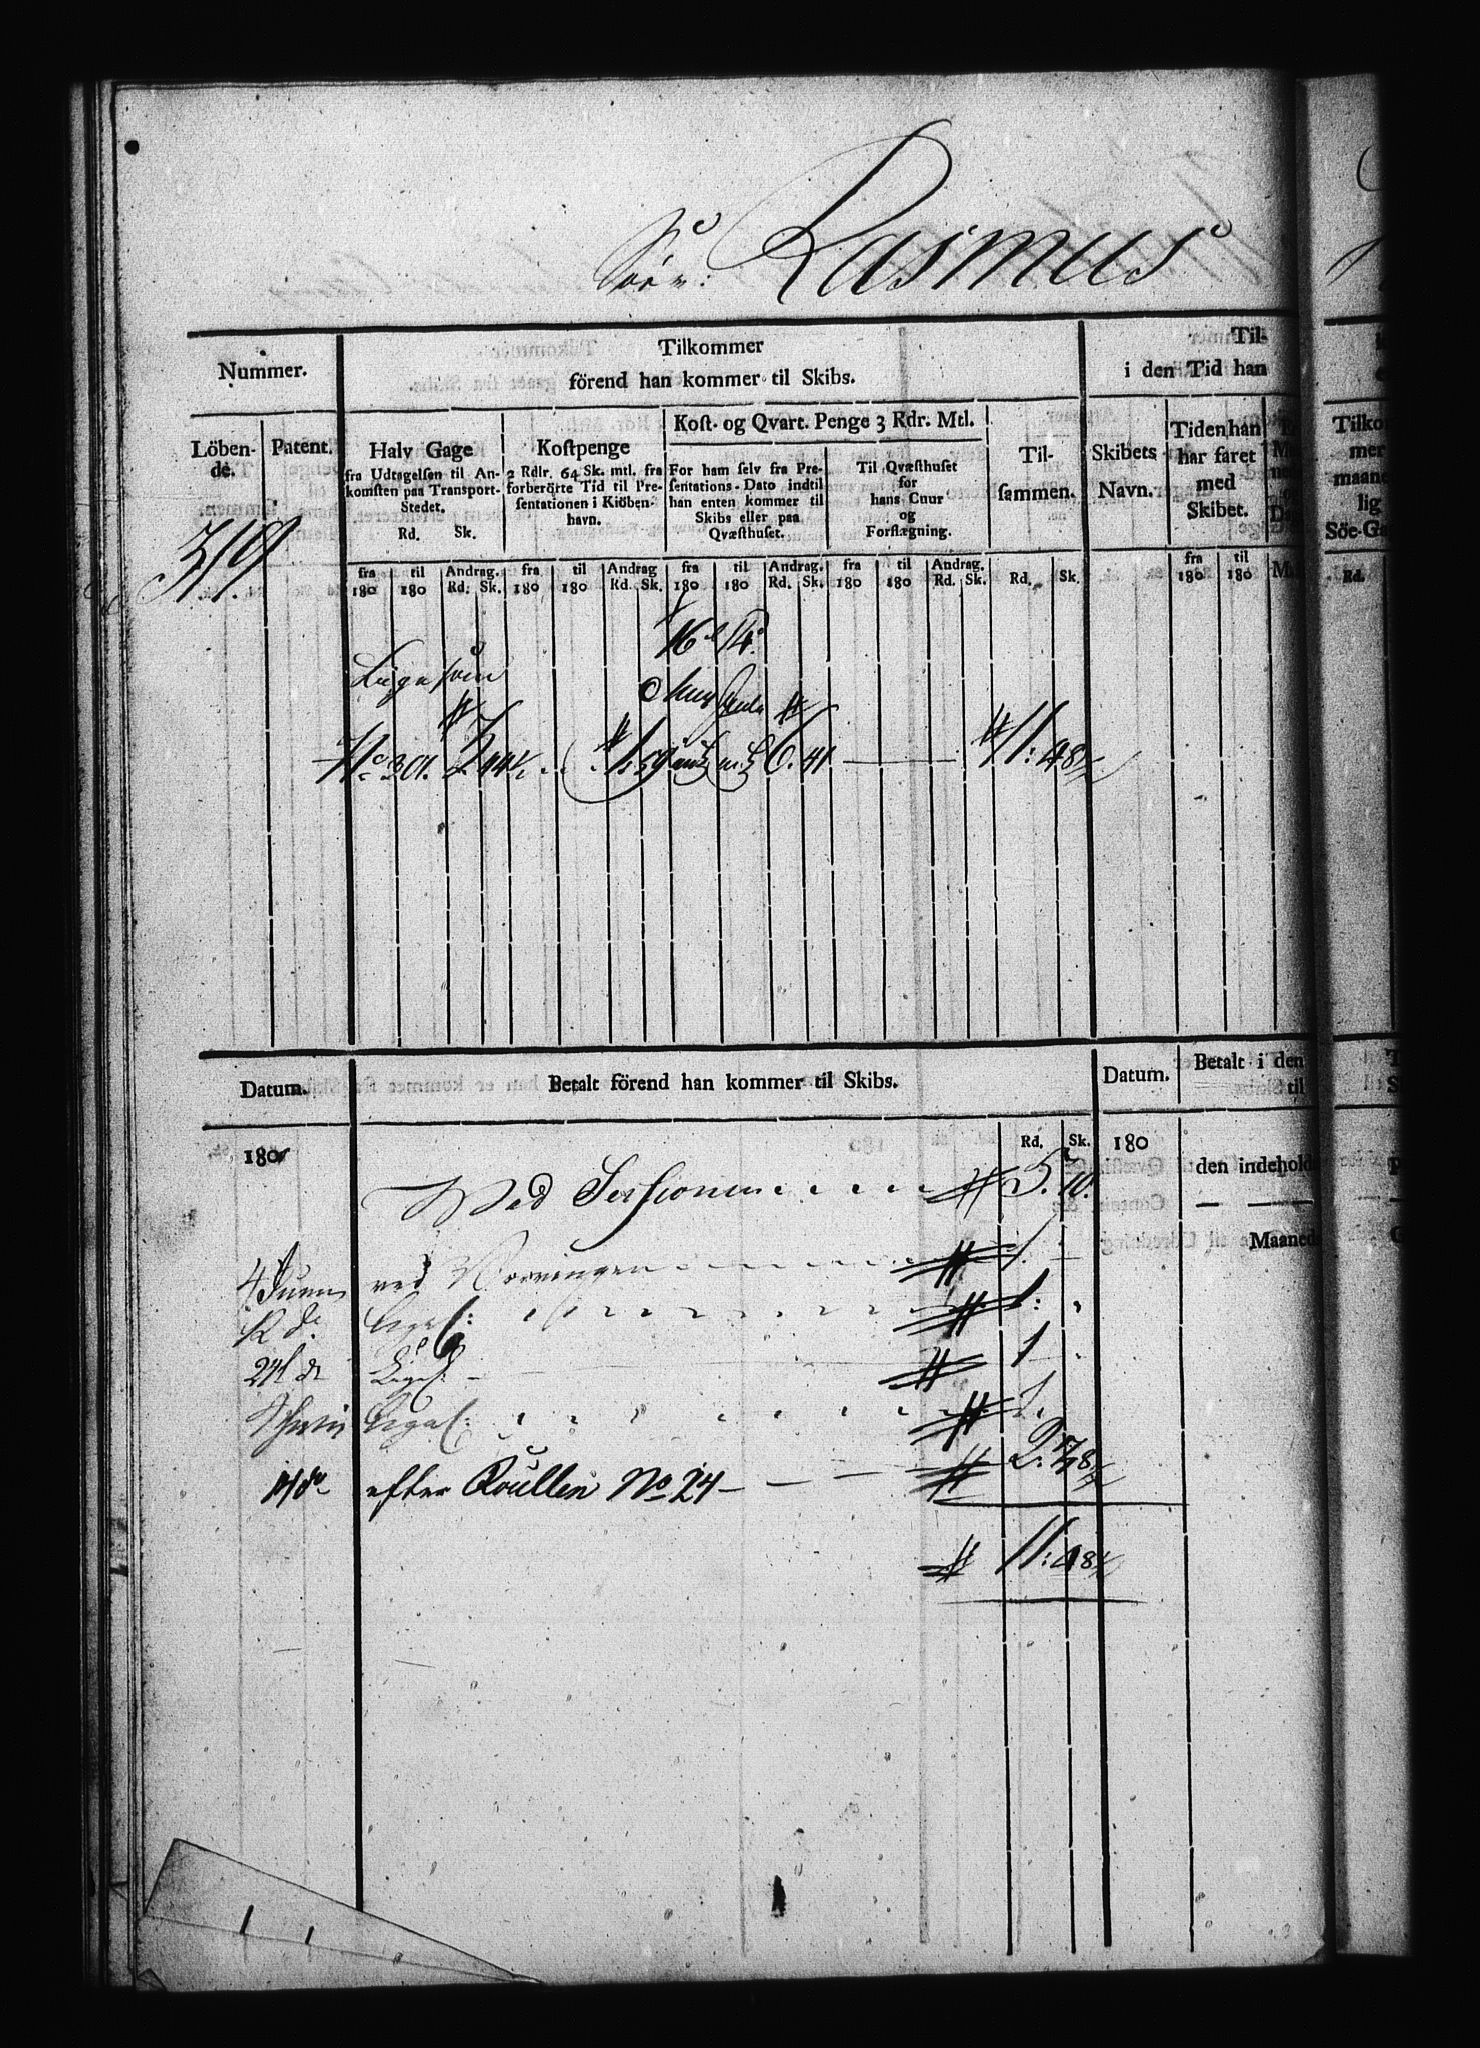 Rasmus
Nummer.
Tilkommer
förend han kommer til Skibs.
Til-
i den Tid han
Löben-
de.
Patent.
Halv Gage
fra Udtagelsen til An-
komsten paa Transport-
Stedet.
Rd. Sk.
Kostpenge
2 Rdlr. 64 Sk. mtl. fra
forberörte Tid til Pre-
sentationen i Kiöben-
havn.
Kost- og Qvart. Penge 3 Rdr. Mtl.
For ham selv fra Pre-
sentations-Dato indtil
han enten kommer til
Skibs eller paa
Qvæsthuset.
Til Qvæsthuset
for
hans Cuur
og
Forflægning.
Til-
sammen.
Skibets
Navn.
Tiden han
har faret
med
Skibet.
Tilko
mer
maane
lig
Söe-Ga
319
fra 180 til 180 Andrag. Rd. Sk. fra 180 til 180 Andrag Rd. Sk. fra 180 til 180 Andrag. Rd. Sk. fra 180 til 180 Andrag. Rd. Sk. Rd. Sk. fra 180 til 180 Rd.
Ligesom
No 301. 3. 44½ 1. 59 6. 41 11: 48½
Datum.
Betalt förend han kommer til Skibs.
Datum.
Betalt i den
til
180
Rd. Sk.
180
Ved Sessionen 5. 10.
den indehold
Maaned
4 Juni ved 1.
12 do Ligel: 1:
24 do Ligel: 1
Ligel: 1.
efter Roullen No 24 2. 38½
11: 48½